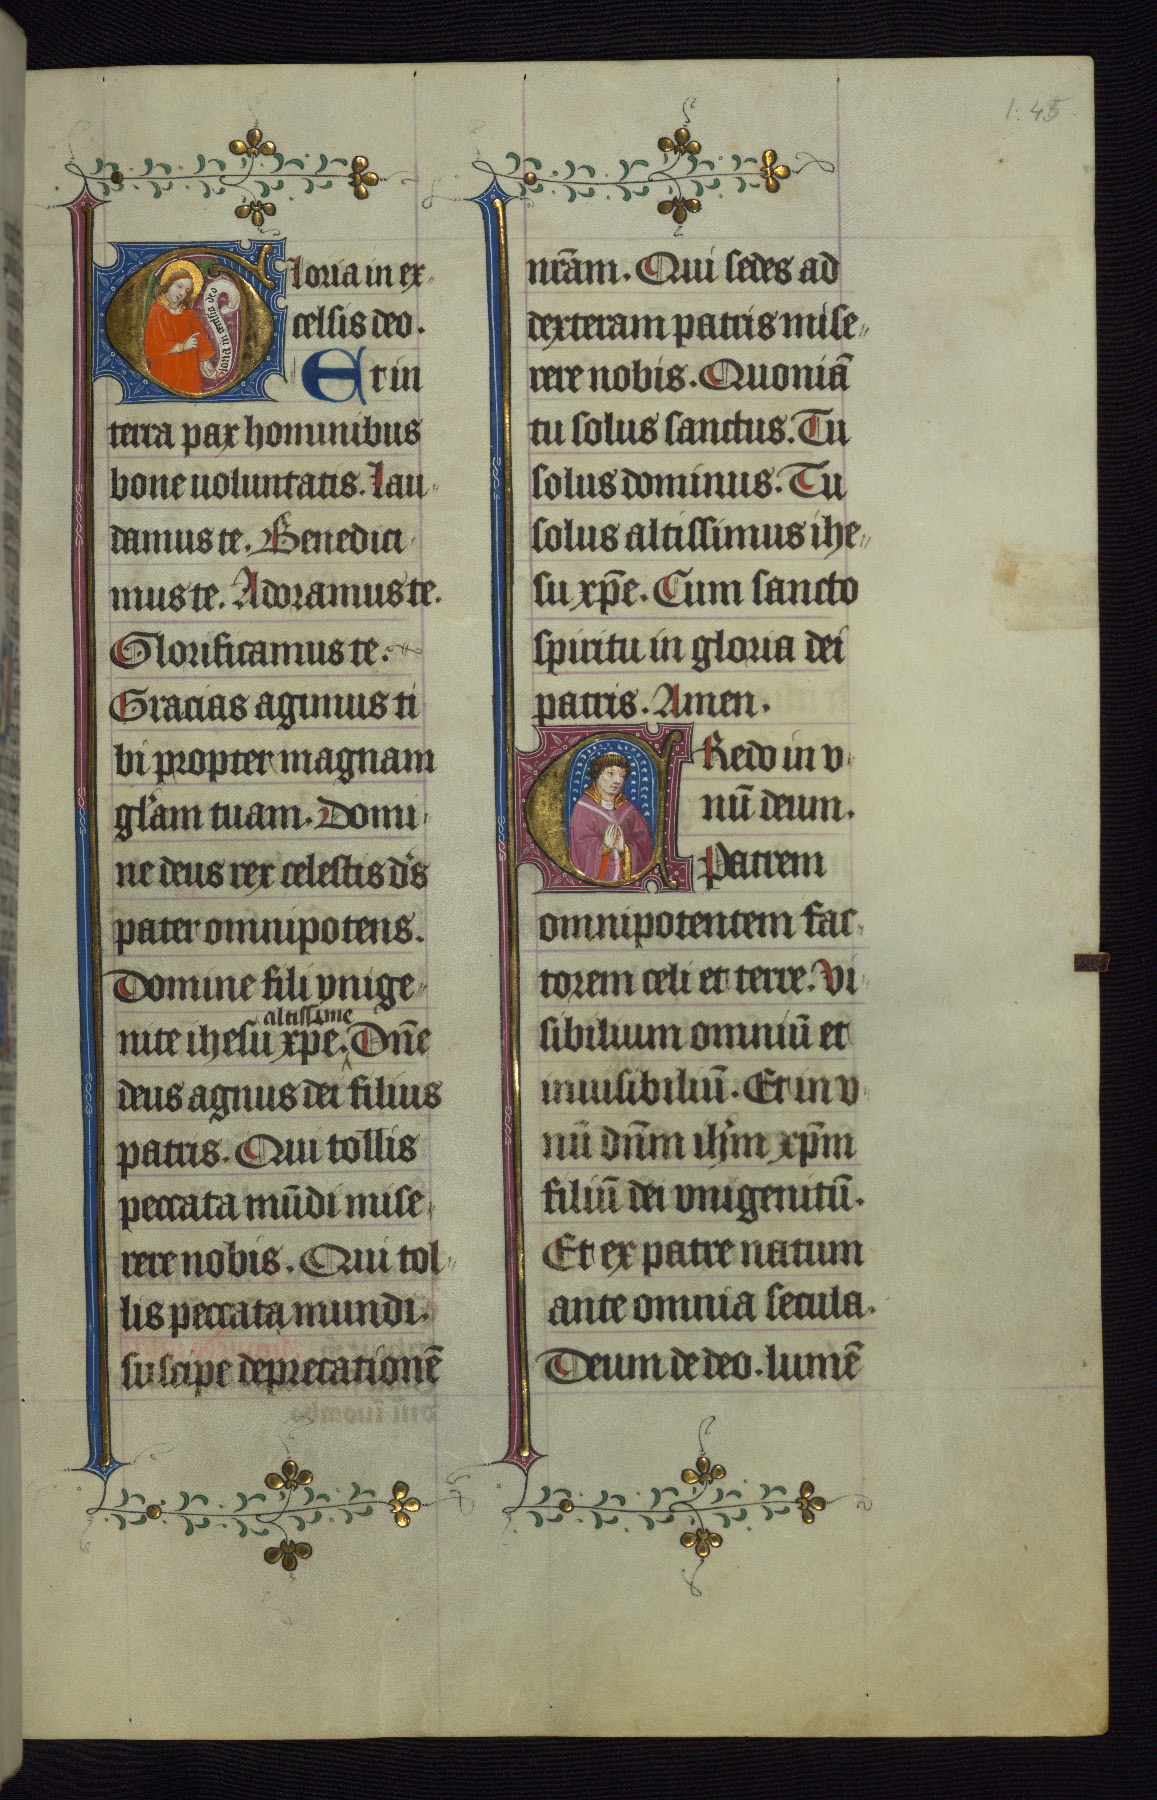 1.45
Gloria in ex
celsis deo.
Et in
terra pax hominibus
bone uoluntatis. Lau
damus te. Benedici
mus te. Adoramus te.
Glorificamus te.
Gracias agimus ti
bi propter magnam
gl'am tuam. Domi
ne deus rex celestis d's
pater omnipotens.
Domine fili vnige
altissime
nite ihesu xp̄e. Dn̄e
deus agnus dei filius
patris. Qui tollis
peccata mūdi mise
rere nobis. Qui tol
lis peccata mundi.
suscipe deprecationē
nr̄am. Qui sedes ad
dexteram patris mise
rere nobis. Quoniā
tu solus sanctus. Tu
solus dominus. Tu
solus altissimus ihe
su xp̄e. Cum sancto
spiritu in gloria dei
patris. Amen.
CRedo in v
nū deum.
Patrem
omnipotentem fac
torem celi et terre. Vi
sibilium omniū et
inuisibiliū. Et in v
nū dn̄m ih̄m xp̄m
filiū dei vnigenitū.
Et ex patre natum
ante omnia secula.
Deum de deo. lumē